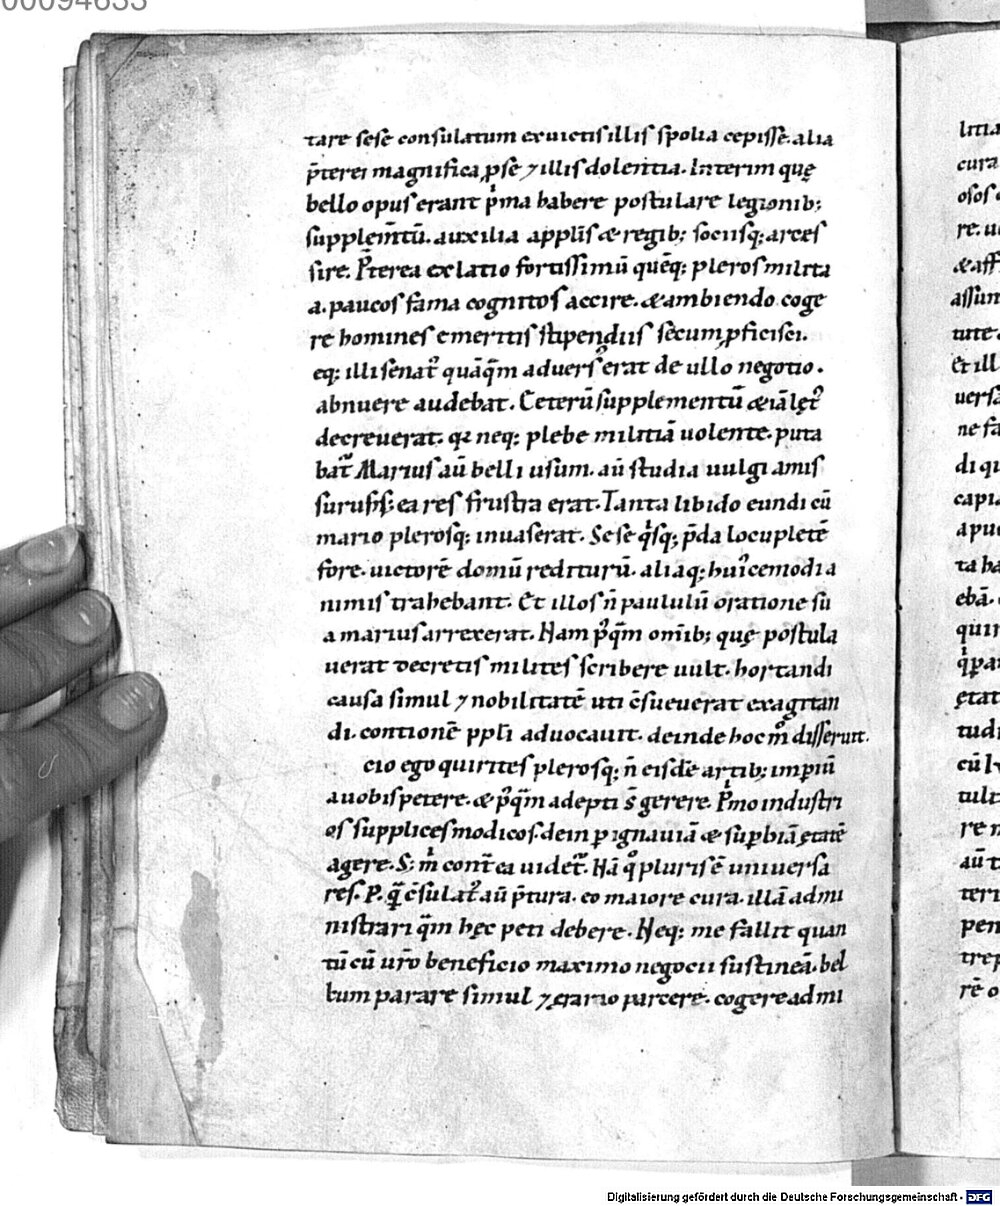 00094633
tare sese consulatum ex uictis illis spolia cepisse. alia
p̄terei magnifica ꝓ se ⁊ illis dolentia. Interim quę
bello opus erant pͥma habere postulare legionib;
supplem̄tū. auxilia a ppl̄is & regib; sociisq; arces
sire. P̄terea ex latio fortissimū quēq; pleros milita
a. paucos fama cognitos accire. & ambiendo coge
re homines emeritis stipendiis secum ꝓficisci.
eq; illi senat᷒ quāq̄m aduers᷒ erat de ullo negotio.
abnuere audebat. Ceterū supplementū & iā lęt᷒
decreuerat. qa neq; plebe militiā uolente. puta
bat᷒ Marius aū belli usum. aū studia uulgi amis
surus. s; ea res frustra erat. Tanta libido eundi cū
mario plerosq; inuaserat. Sese qͥsq; p̄da locupletē
fore. uictorē domū rediturū. aliaq; hui᷒cemodi a
nimis trahebant. Et illos n̄ paululū oratione su
a marius arrexerat. Nam p᷒q̄m om̄ib; quę postula
uerat decretis milites scribere uult. hortandi
causa simul ⁊ nobilitatē uti c̄sueuerat exagitan
di. contionē ppl̄i aduocauit. deinde hoc m̊ disseruit.
cio ego quirites plerosq; n̄ eisdē artib; impiū
a uobis petere. & p᷒q̄m adepti s̄ gerere. Pͥmo industri
os supplices modicos. dein ꝑ ignauiā & supbiā ętatē
agere. S; m̄ contͣ ea uidet᷒. Nā qͦ pluris ē uniuersa
res. P. qͣ c̄sulat᷒ aū p̄tura. eo maiore cura. illā admi
nistrari q̄m hęc peti debere. Neq; me fallit quan
tū cū ur̄o beneficio maximo negocii sustineā. bel
lum parare simul ⁊ ęrario parcere. cogere ad mi
Digitalisierung gefördert durch die Deutsche Forschungsgemeinschaft - DFG